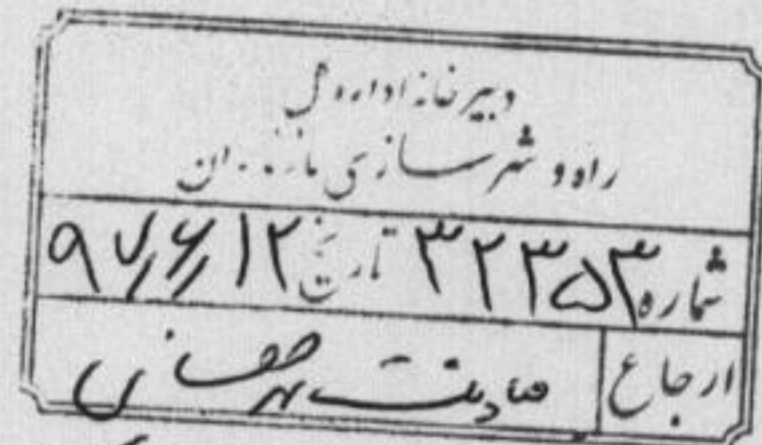 دبیرخانه اداره کل
راه و شهرسازی مازندران
شماره ۳۲۳۵۳ تاریخ ۹۷/۶/۱۲
ارجاع